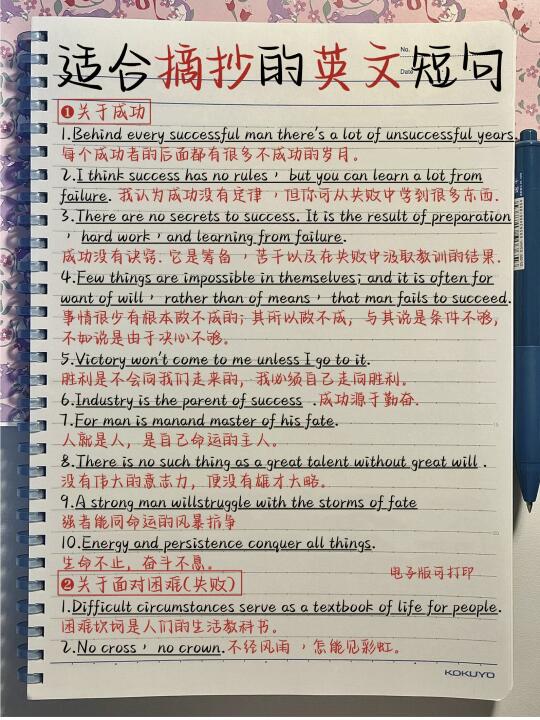 适合摘抄的英文短句
No.
Date
❶关于成功
1.Behind every successful man there's a lot of unsuccessful years.
每个成功者的后面都有很多不成功的岁月。
2.I think success has no rules，but you can learn a lot from
failure. 我认为成功没有定律，但你可从失败中学到很多东西.
3.There are no secrets to success. It is the result of preparation
，hard work，and learning from failure.
成功没有诀窍. 它是筹备，苦干以及在失败中汲取教训的结果.
4.Few things are impossible in themselves; and it is often for
want of will，rather than of means，that man fails to succeed.
事情很少有根本做不成的；其所以做不成，与其说是条件不够，
不如说是由于决心不够。
5.Victory won't come to me unless I go to it.
胜利是不会向我们走来的，我必须自己走向胜利。
6.Industry is the parent of success .成功源于勤奋.
7.For man is manand master of his fate.
人就是人，是自己命运的主人。
8.There is no such thing as a great talent without great will .
没有伟大的意志力，便没有雄才大略。
9.A strong man willstruggle with the storms of fate
强者能同命运的风暴抗争
10.Energy and persistence conquer all things.
生命不止，奋斗不息。
电子版可打印
❷关于面对困难(失败)
1.Difficult circumstances serve as a textbook of life for people.
困难坎坷是人们的生活教科书。
2.No cross，no crown.不经风雨，怎能见彩虹。
KOKUYO